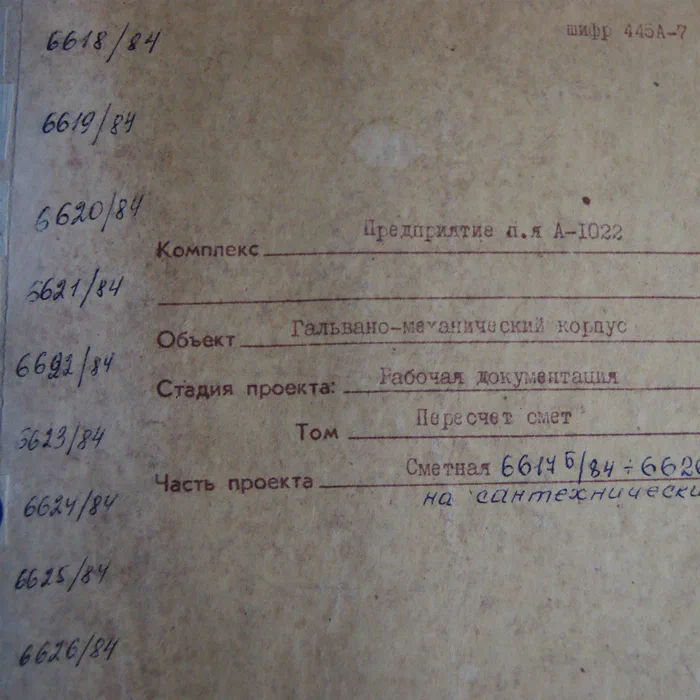 6618/84
шифр 445А-7
6619/84
6620/84
Предприятие п.я А-1022
Комплекс
6621/84
Объект Гальвано-механический корпус
6692/84
Стадия проекта: Рабочая документация
Том Пересчет смет
6623/84
Часть проекта Сметная 6617б/84 ÷ 6626
на сантехнически
6624/84
6625/84
6626/84